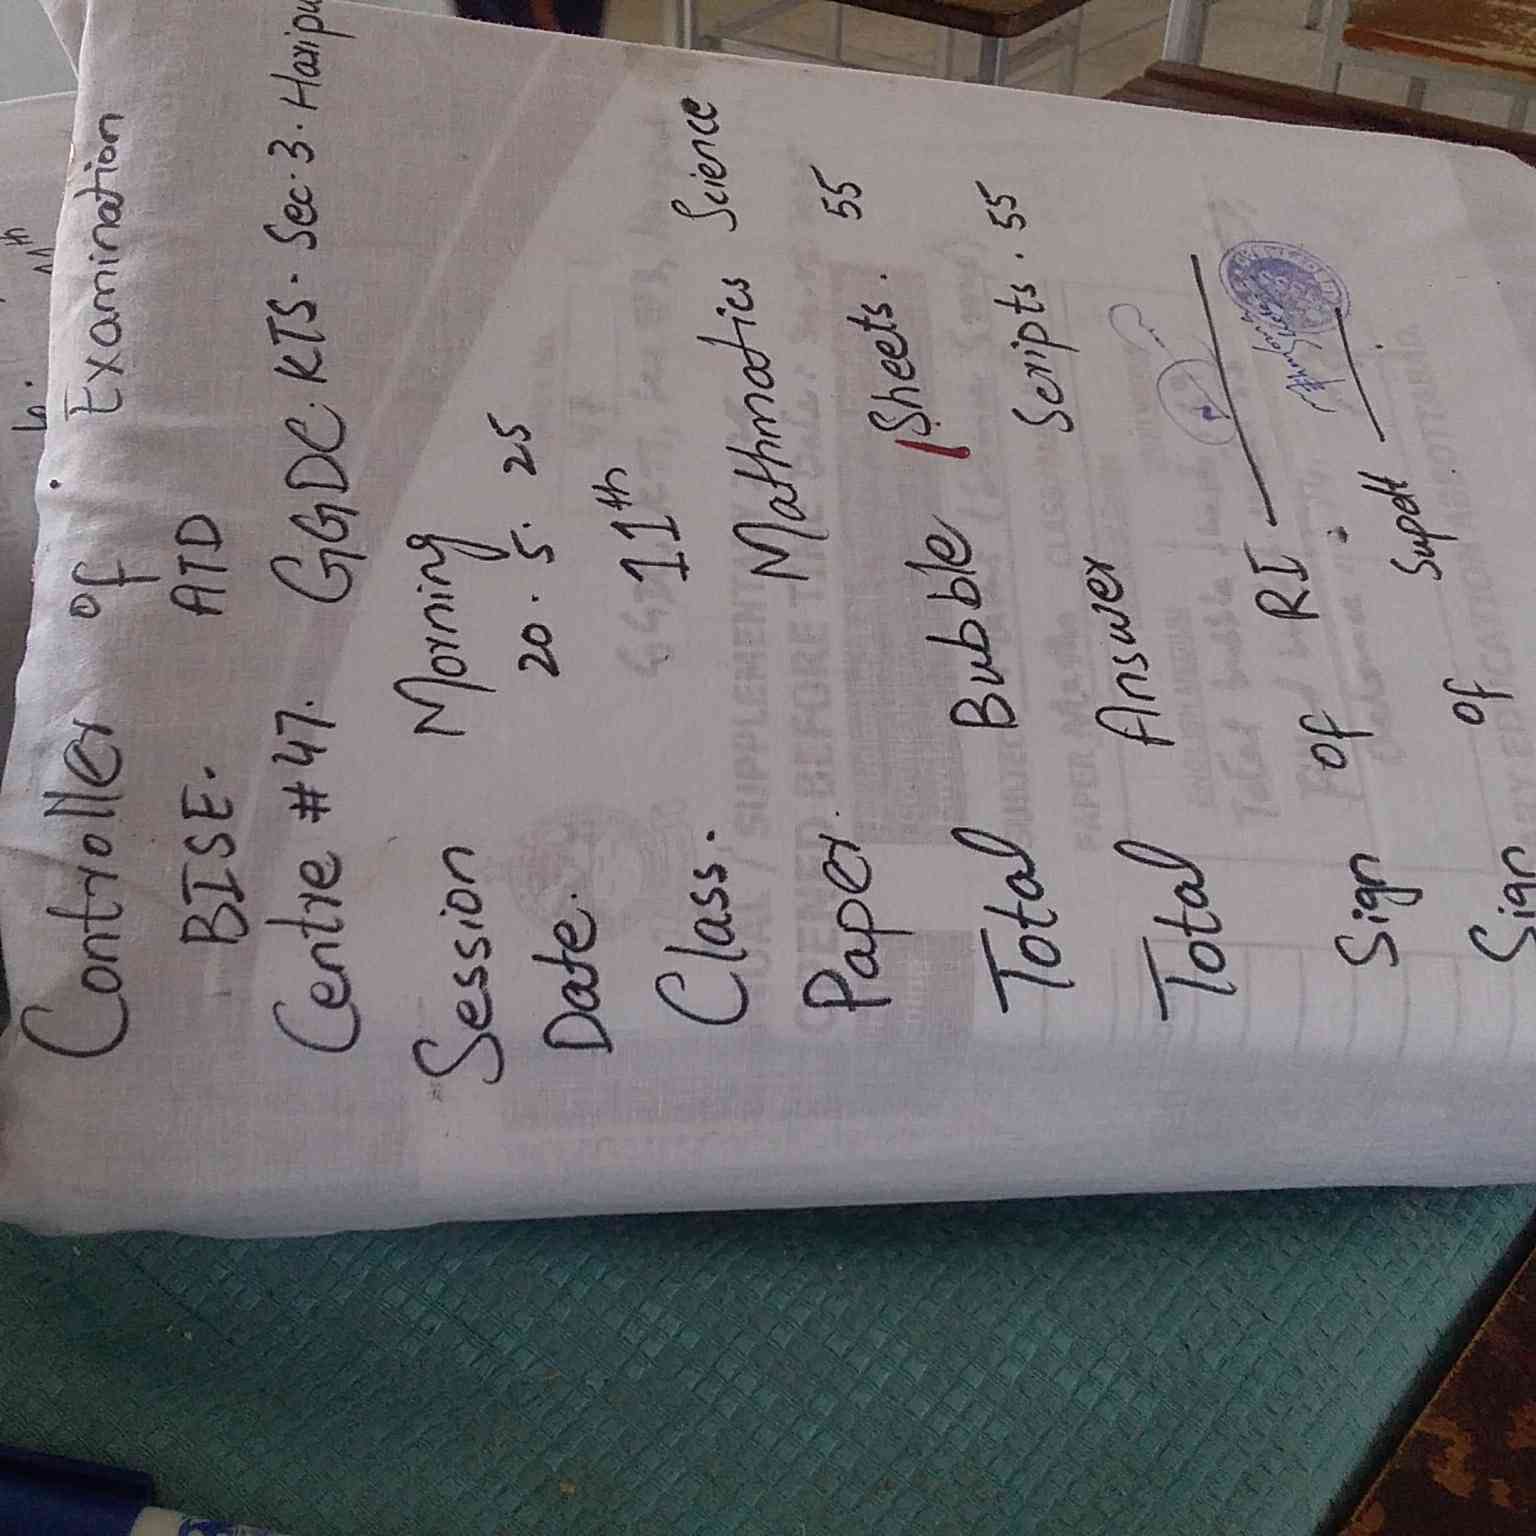 Controller of Examination
BISE. ATD
Centre #47. GGDC. KTS - Sec. 3. Haripu
Session Morning
Date. 20. 5. 25
Class. 11th
Paper. Mathmatics Science
Total Bubble Sheets. 55
Total Answer Scripts. 55
Sign of RI
Sign of Supdt